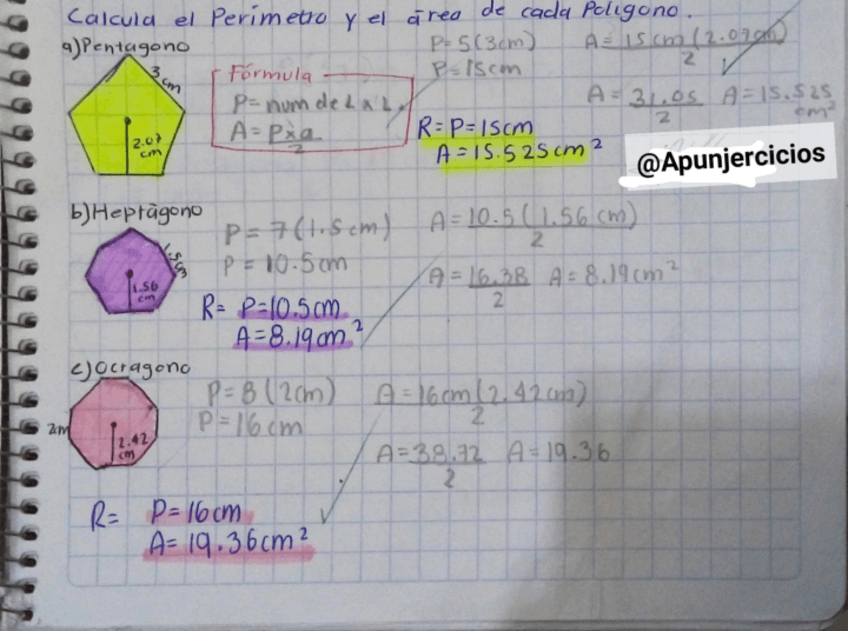 Calcula el Perímetro y el área de cada Polígono.
a)Pentagono
3 cm
2.07
cm
Fórmula
P= num de L x L
A= Pxa
2
P= 5(3cm)
P= 15cm
A= 15cm(2.07cm)
2
A= 31.05
2
A=15.525
cm²
R= P=15cm
A=15.525cm²
@Apunjercicios
b)Heptágono
1.5cm
1.56
cm
P= 7(1.5cm)
P= 10.5cm
A= 10.5(1.56cm)
2
A= 16.38
2
A= 8.19cm²
R= P=10.5cm
A=8.19cm²
c)Octagono
2m
2.42
cm
P=8(2cm)
P=16cm
A=16cm(2.42cm)
2
A=38.72
2
A=19.36
R= P=16cm
A=19.36cm²